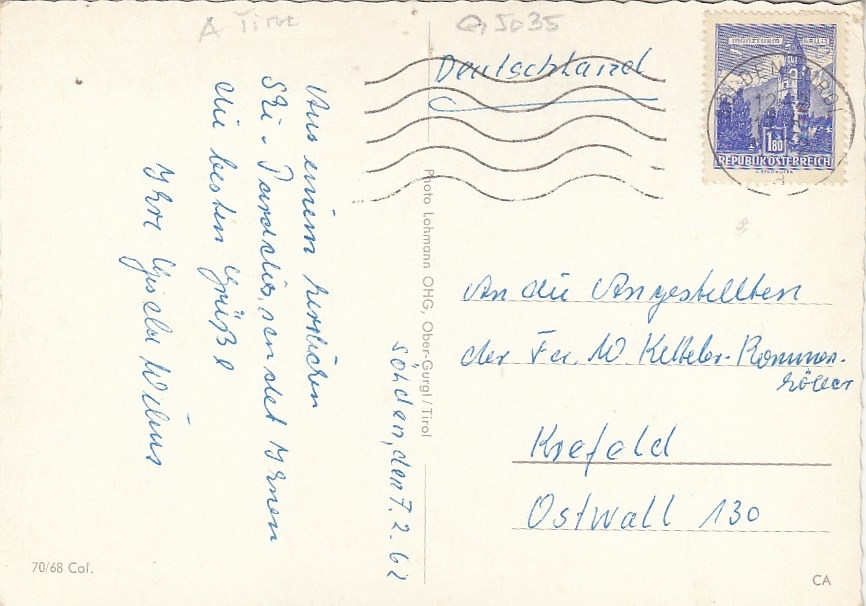 A Tirol
A 5035
Deutschland
MÜNZTURM HALL I.T.
1.80
REPUBLIK ÖSTERREICH
Sölden, den 7. 2. 62
Aus einem herrlichen
Ski-Paradies, sendet Ihnen
die besten Grüße
Ihre Gisela Wilms
Photo Lohmann OHG, Ober-Gurgl/Tirol
An die Angestellten
der Fa. W. Ketteler-Kommer-
Krefeld
Ostwall 130
70/68 Col.
CA